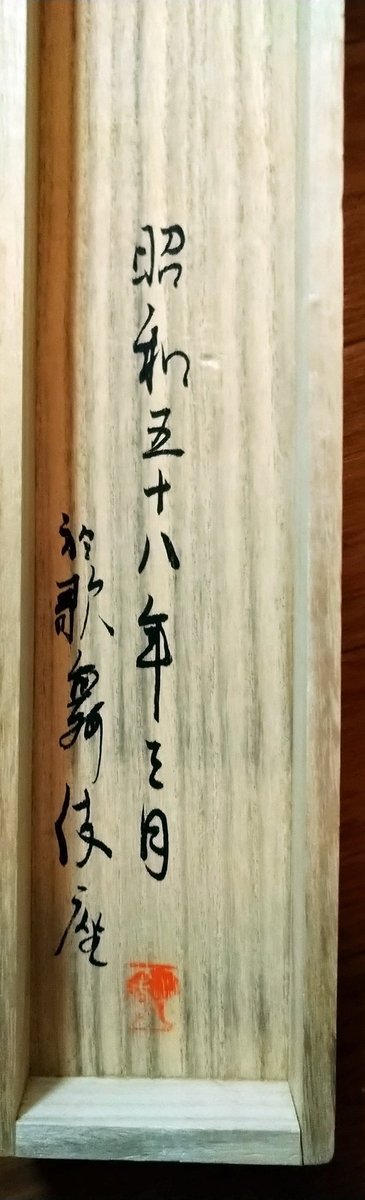 昭和五十八年三月
於歌舞伎座